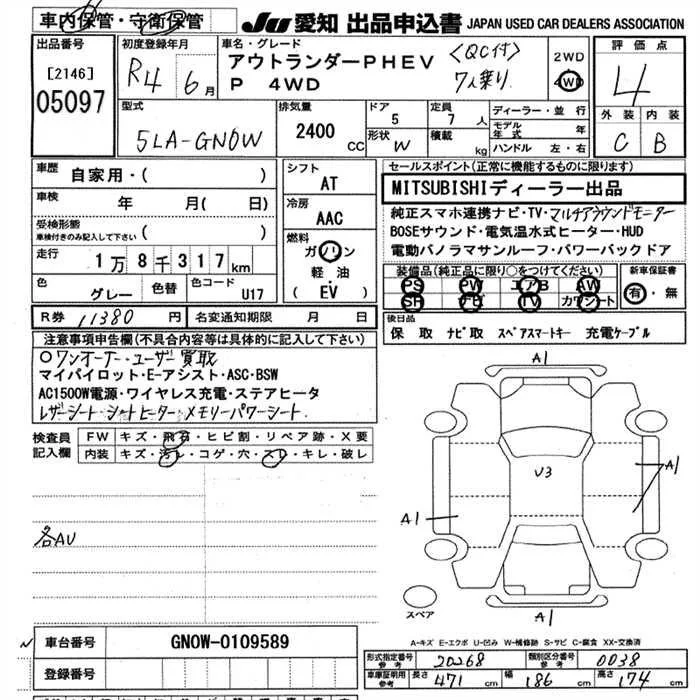 車内保管・守衛保管
JU 愛知 出品申込書 JAPAN USED CAR DEALERS ASSOCIATION
出品番号
[2146]
05097
初度登録年月
R4 6月
車名・グレード
アウトランダーPHEV
P 4WD
〈QC付〉
7人乗り
2WD
4WD
評価点
4
外装 内装
C B
型式
5LA-GN0W
排気量
2400 cc
ドア
5
形状
W
定員
7人
積載
kg
ディーラー・並行
モデル年式 年
ハンドル 左・右
車歴
自家用・( )
車検
年 月( 日)
受検形態
車検付きのみ記入して下さい
( )
走行
1万8千317km
色
グレー
色替
色コード
U17
シフト
AT
冷房
AAC
燃料
ガソリン
・
軽油
(EV)
R券 11380円
名変通知期限 月 日
セールスポイント(正常に機能するものに限ります)
MITSUBISHIディーラー出品
純正スマホ連携ナビ・TV・マルチアラウンドモニター
BOSEサウンド・電気温水式ヒーター・HUD
電動パノラマサンルーフ・パワーバックドア
装備品(純正品に限り○をつけてください)
PS PW エアB AW
SR ナビ TV カワシート
新車保証書
有・無
後日品
保 取 ナビ取 スペアスマートキー 充電ケーブル
注意事項申告欄(不具合内容等は具体的に記入して下さい)
○ワンオーナー・ユーザー買取
マイパイロット・E-アシスト・ASC・BSW
AC1500W電源・ワイヤレス充電・ステアヒータ
レザーシート・シートヒーター・メモリーパワーシート.
検査員記入欄
FW キズ・飛石・ヒビ割・リペア跡・X要
内装 キズ・汚レ・コゲ・穴・スレ・キレ・破レ
各AU
A1
U3
A1
A1
A1
スペア
A-キズ E-エクボ U-凹み W-補修跡 S-サビ C-腐食 XX-交換済
車台番号
GN0W-0109589
登録番号
型式指定番号 参考
20268
類別区分番号 参考
0038
車庫証明用 参考
長さ 471cm
幅 186cm
高さ 174cm